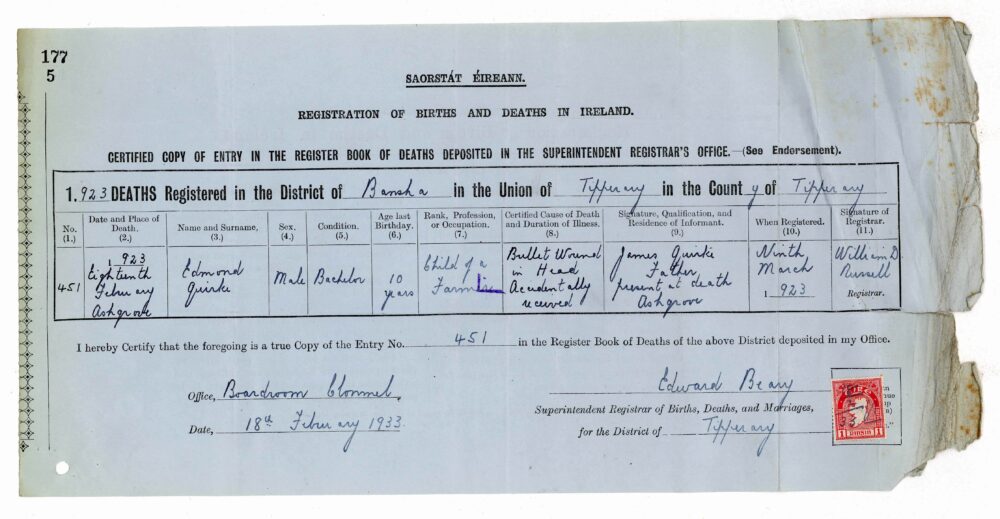 177
5
SAORSTÁT ÉIREANN.
REGISTRATION OF BIRTHS AND DEATHS IN IRELAND.
CERTIFIED COPY OF ENTRY IN THE REGISTER BOOK OF DEATHS DEPOSITED IN THE SUPERINTENDENT REGISTRAR'S OFFICE.—(See Endorsement).
1.923 DEATHS Registered in the District of Bansha in the Union of Tipperary in the County of Tipperary
No. (1.) Date and Place of Death. (2.) Name and Surname, (3.) Sex. (4.) Condition. (5.) Age last Birthday. (6.) Rank, Profession, or Occupation. (7.) Certified Cause of Death and Duration of Illness. (8.) Signature, Qualification, and Residence of Informant. (9.) When Registered. (10.) Signature of Registrar. (11.)
451 1 923 Eighteenth February Ashgrove Edmond Quirke Male Bachelor 10 years Child of a Farmer Bullet Wound in Head Accidentally received James Quirke Father present at death Ashgrove Ninth March 1 923 William D Russell Registrar.
I hereby Certify that the foregoing is a true Copy of the Entry No. 451 in the Register Book of Deaths of the above District deposited in my Office.
Office, Boardroom Clonmel,
Date, 18th February 1933.
Edward Beary
Superintendent Registrar of Births, Deaths, and Marriages,
for the District of Tipperary
1 1